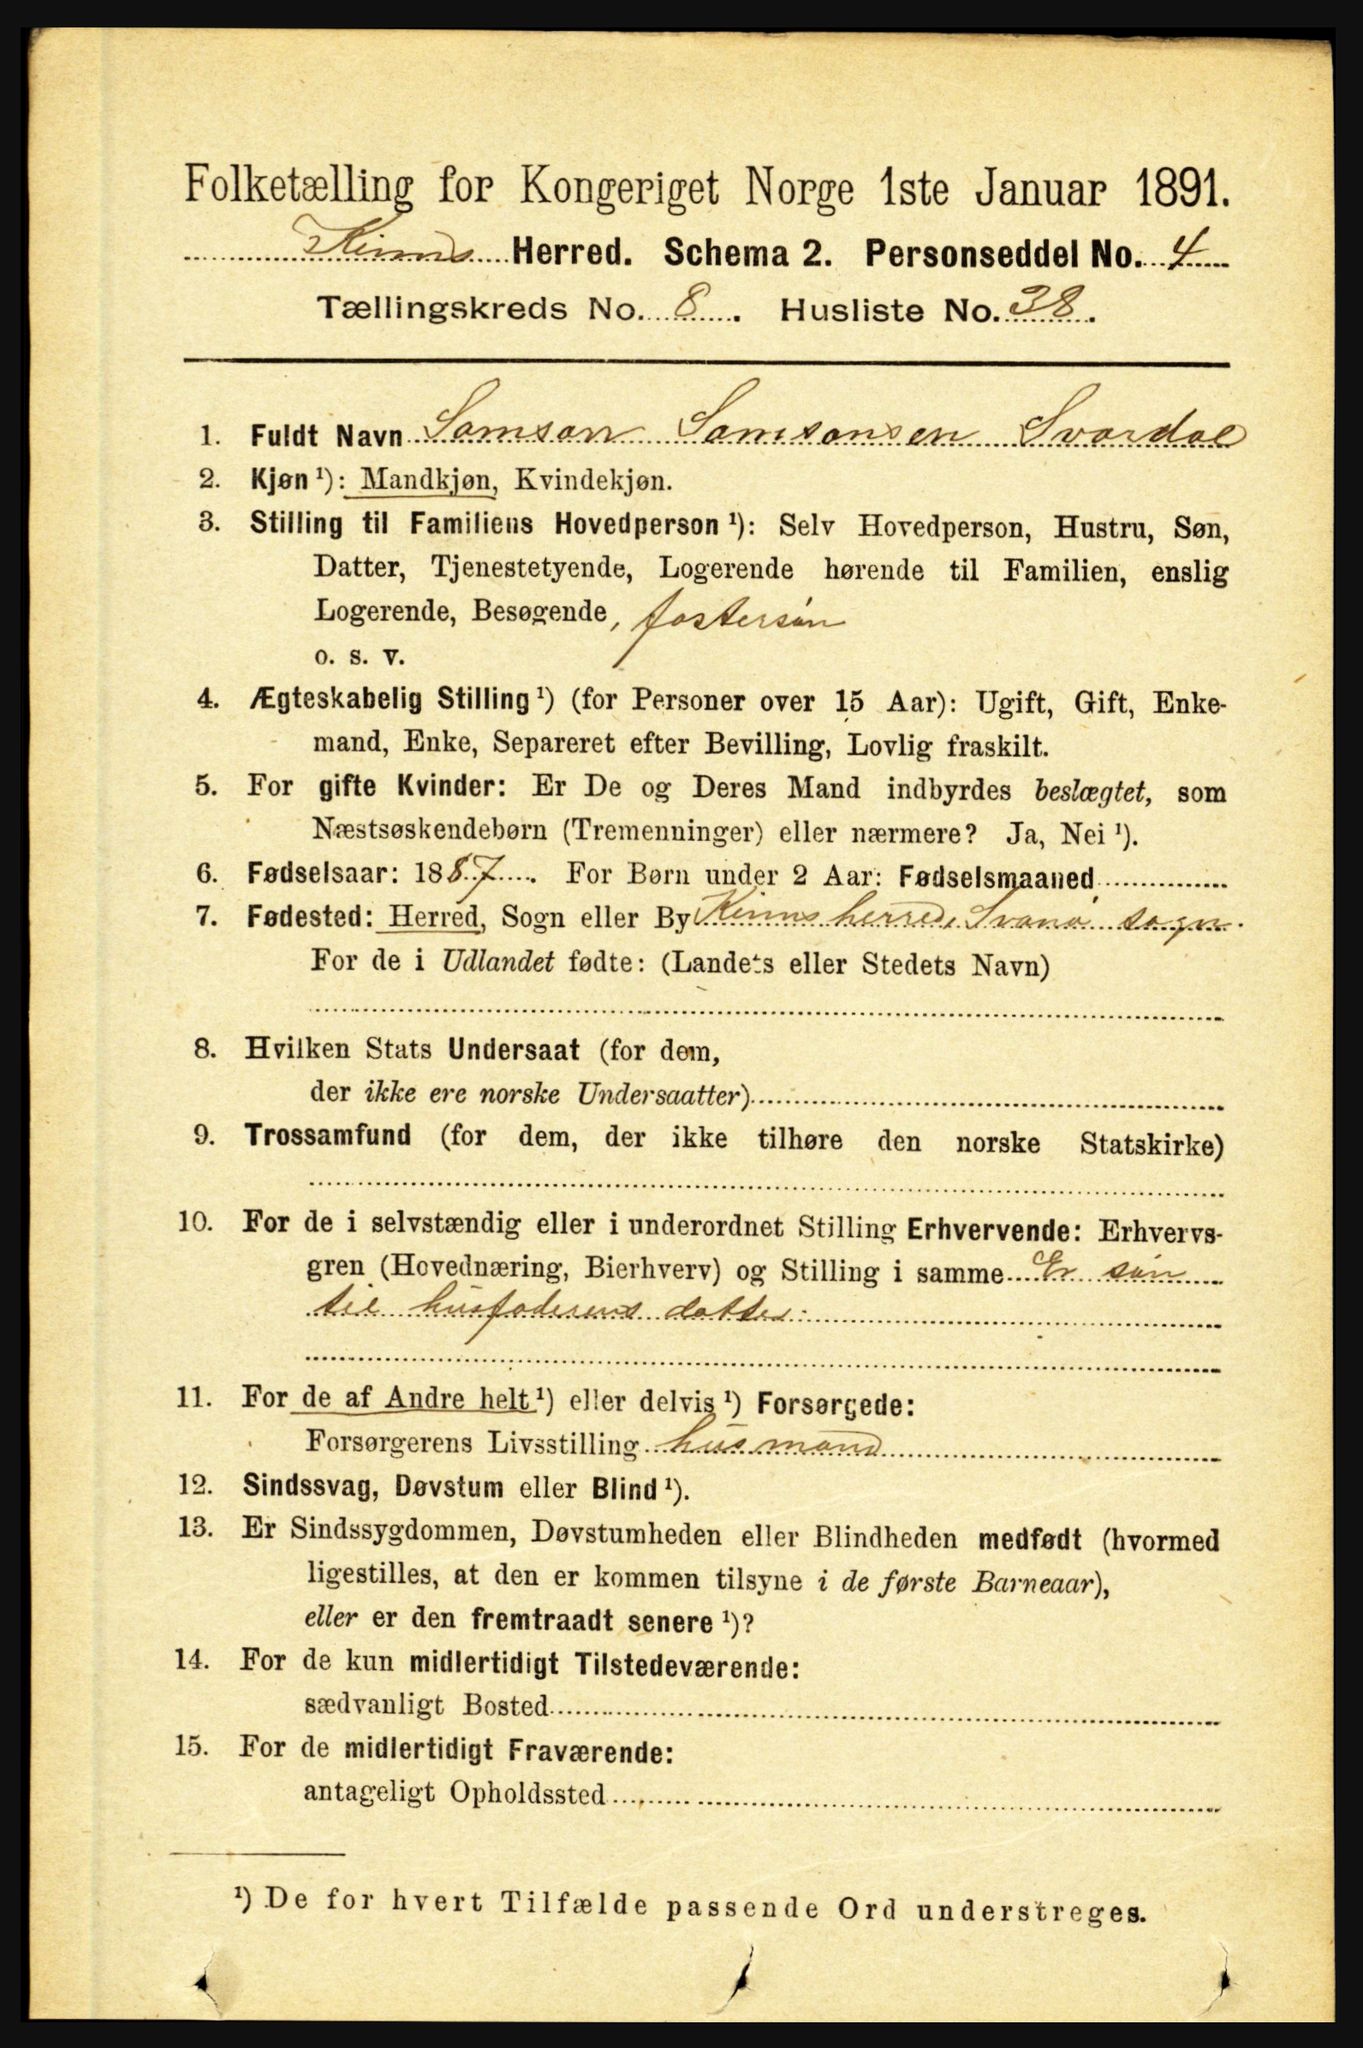 Folketælling for Kongeriget Norge 1ste Januar 1891.
Kinns Herred. Schema 2. Personseddel No. 4
Tællingskreds No. 8. Husliste No. 38.
1. Fuldt Navn Samson Samsonsen Svardal
2. Kjøn ¹): Mandkjøn, Kvindekjøn.
3. Stilling til Familiens Hovedperson ¹): Selv Hovedperson, Hustru, Søn,
Datter, Tjenestetyende, Logerende hørende til Familien, enslig
Logerende, Besøgende, fostersøn
o. s. v.
4. Ægteskabelig Stilling ¹) (for Personer over 15 Aar): Ugift, Gift, Enke-
mand, Enke, Separeret efter Bevilling, Lovlig fraskilt.
5. For gifte Kvinder: Er De og Deres Mand indbyrdes beslægtet, som
Næstsøskendebørn (Tremenninger) eller nærmere? Ja, Nei ¹).
6. Fødselsaar: 1887. For Børn under 2 Aar: Fødselsmaaned
7. Fødested: Herred, Sogn eller By Kinns herred, Svanø sogn.
For de i Udlandet fødte: (Landets eller Stedets Navn)
8. Hvilken Stats Undersaat (for dem,
der ikke ere norske Undersaatter)
9. Trossamfund (for dem, der ikke tilhøre den norske Statskirke)
10. For de i selvstændig eller i underordnet Stilling Erhvervende: Erhvervs-
gren (Hovednæring, Bierhverv) og Stilling i samme Er søn
til husfaderens datter.
11. For de af Andre helt ¹) eller delvis ¹) Forsørgede:
Forsørgerens Livsstilling husmand
12. Sindssvag, Døvstum eller Blind ¹).
13. Er Sindssygdommen, Døvstumheden eller Blindheden medfødt (hvormed
ligestilles, at den er kommen tilsyne i de første Barneaar),
eller er den fremtraadt senere ¹)?
14. For de kun midlertidigt Tilstedeværende:
sædvanligt Bosted
15. For de midlertidigt Fraværende:
antageligt Opholdssted
¹) De for hvert Tilfælde passende Ord understreges.